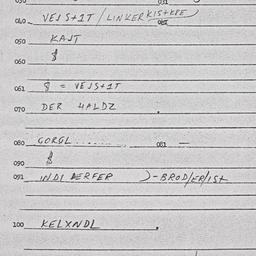 040 VEJS+1T / LINKER KIS+KPE
050 KAJT
$
060
061 $ = VEJS+1T
070 DER HALDZ .
080 GORGL ........ 081 —
090 $
091 INDI DERFER )-BROD/ER/IS+
100 KELXNDL .